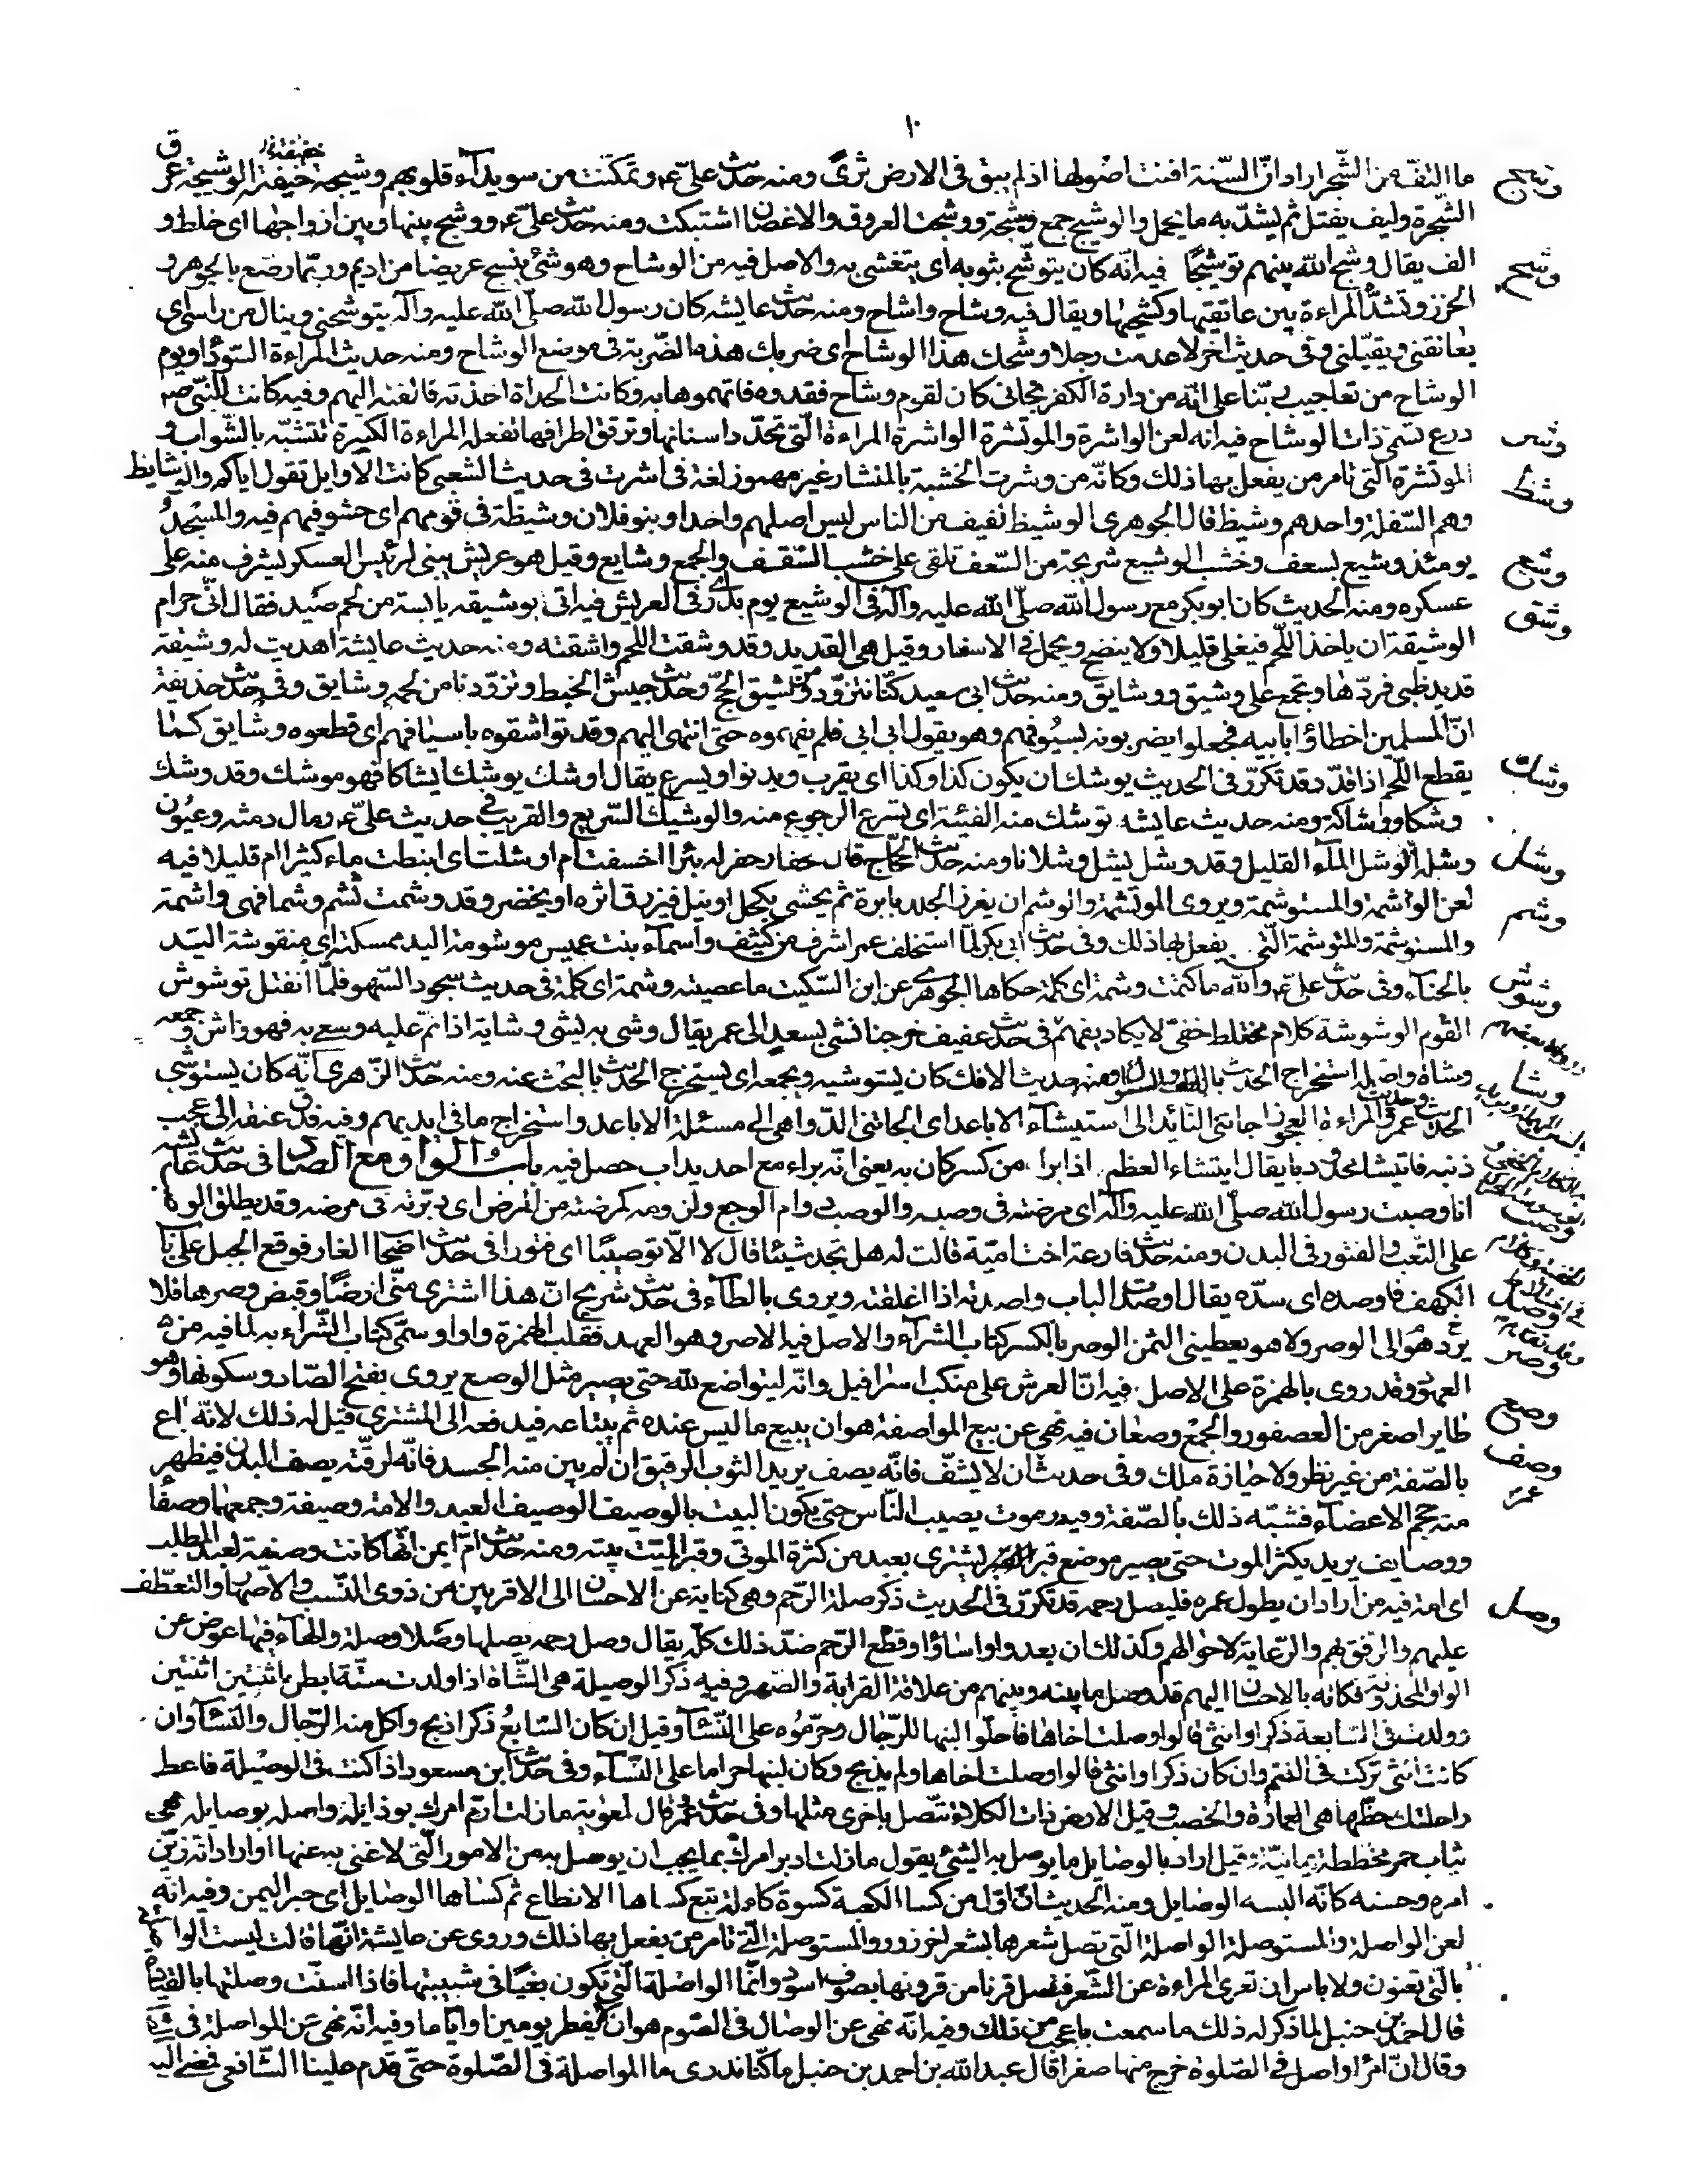 ١٠
وشج
ما التفّ من الشّجر اراد انّ السّنة افنت اصولها اذ لم يبق فى الارض ثرىً ومنه حديث علىّ ع م وتمكّنت من سويدآء قلوبهم وشيجة خيفته الوشيجة عرق
الشّجرة وليف يفتل ثم يشدّ به ما يحمل والوشيج جمع وشيجة ووشجت العروق والاغصان اشتبكت ومنه حديث علىّ ع م ووشج بينها وبين ازواجها اى خلط و
وشح
الف يقال وشج الله بينهم توشيجًا فيه انّه كان يتوشّح بثوبه اى يتغشى به والاصل فيه من الوشاح وهو شئ ينسج عريضا من اديم وربّما رصّع بالجوهر و
الخرز وتشدّه المراءة بين عاتقيها وكشحيها ويقال فيه وشاح واشاح ومنه حديث عايشه كان رسول الله صلّى الله عليه وآله يتوشّحنى وينال من راسى اى
يعانقنى ويقبّلنى وفى حديث اخر لا عدمت رجلا وشّحك هذا الوشاح اى ضربك هذه الضّربة فى موضع الوشاح ومنه حديث المراءة السّوداء ويوم
الوشاح من تعاجيب ربّنا على انّه من دارة الكفر نجانى كان لقوم وشاح فقدوه فاتهموها به وكانت الحداة اخذته فالقته اليهم وفيه كانت للنّبى ص م
وشر
درع تسمّى ذات الوشاح فيه انه لعن الواشرة والموتشرة الواشرة المراءة الّتى تحدّد اسنانها وترقق اطرافها تفعله المراءة الكبيرة تتشبّه بالشّواب و
وشظ
الموتشرة الّتى تامر من يفعل بها ذلك وكانّه من وشرت الخشبة بالمنشار غير مهموز لغة فى اشرت فى حديث الشعبى كانت الاوايل تقول اياكم والوشايظ
وهم السّفلة واحدهم وشيظ قال الجوهرى الوشيظ لفيف من الناس ليس اصلهم واحدا وبنو فلان وشيظة فى قومهم اى حشو فيهم فيه والمسجد
وشع
يومئذ وشيع بسعف وخشب الوشيع شريجة من السّعف تلقى على خشب السّقف والجمع وشايع وقيل هو عريش يبنى لرئيس العسكر يشرف منه على
وشق
عسكره ومنه الحديث كان ابو بكر مع رسول الله صلّى الله عليه وآله فى الوشيع يوم بدر اى فى العريش فيه اتى بوشيقه يابسة من لحم صيد فقال انّى حرام
الوشيقة ان ياخذ اللّحم فيغلى قليلا ولا ينضج ويحمل فى الاسفار وقيل هى القديد وقد وشقت اللحم واشقته ومنه حديث عايشة اهديت له وشيقة
قديد ظبى فردّها وتجمع على وشيق ووشايق ومنه حديث ابى سعيد كنّا نتزوّد من وشيق الحجّ وحديث جيش الخبط وتزوّدنا من لحمه وشايق وفى حديث حذيفة
انّ المسلمين اخطاؤا بابيه فجعلوا يضربونه بسيوفهم وهو يقول ابى ابى فلم يفهموه حتى انتهى اليهم وقد تواشقوه باسيافهم اى قطعوه وشايق كما
وشك
يقطع اللّحم اذا قدّد قد تكرّر فى الحديث يوشك ان يكون كذا وكذا اى يقرب ويدنوا ويسرع يقال اوشك يوشك ايشاكا فهو موشك وقد وشك
وشكا ووشاكة ومنه حديث عايشه توشك منه الفيئة اى تسرع الرجوع منه والوشيك السّريع والقريب فى حديث علىّ ع م رمال دمثه وعيون
وشل
وشلة الوشل المآء القليل وقد وشل يشل وشلانا ومنه حديث الحجّاج قال لحفار حفر له بئرا اخسفت ام اوشلت اى انبطت ماء كثيرا ام قليلا فيه
وشم
لعن الواشمة والمستوشمة ويروى الموتشمة والوشم ان يغرز الجلد بابرة ثم يحشى بكحل او نيل فيزرق اثره او يخضر وقد وشمت تشم وشما فهى واشمة
والمستوشمة والموتشمة الّتى يفعل بها ذلك وفى حديث ابى بكر لمّا استخلف عمر اشرف من كنيف واسمآء بنت عميس موشومة اليد ممسكته اى منقوشة اليد
وشوش
بالحنآء وفى حديث علىّ ع م والله ما كتمت وشمة اى كلمة حكاها الجوهرى عن ابن السّكيت ما عصيته وشمة اى كلمة فى حديث سجود السّهو فلمّا انفتل توشوش
القوم الوشوشة كلام مختلط خفىّ لا يكاد يفهم فى حديث عفيف خرجنا نشى بسعد الى عمر يقال وشى به يشى وشاية اذا نمّ عليه وسعى به فهو واش وجمعه
وشا
وشاة واصله استخراج الحديث باللطف والسؤال ومنه حديث الافك كان يستوشيه ويجمعه اى يستخرج الحديث بالبحث عنه ومنه حديث الزّهرى انّه كان يستوشى
الحديث وحديث عمر والمراءة العجوز اجائتنى النّائد الى استيشآء الاباعد اى الجائتنى الدّواهى الى مسئلة الاباعد واستخراج ما فى ايديهم وفيه فدقّ عنقه الى عجب
ذنبه فايتشا محدودبا يقال ايتشاء العظم اذا برا من كسر كان به يعنى انّه براء مع احديداب حصل فيه باب الواو مع الصّاد فى حديث عايشه
وصب
انا وصبت رسول الله صلّى الله عليه وآله اى مرضته فى وصبه والوصب دوام الوجع ولزومه كمرضته من المرض اى دبّرته فى مرضه وقد يطلق الوصب
على التّعب والفتور فى البدن ومنه حديث فارعة اخت اميّة قالت له هل تجد شيئا قال لا الّا توصيبًا اى فتورا فى حديث اصحاب الغار فوقع الجبل على باب
وصد
الكهف فاوصده اى سدّه يقال اوصدت الباب واصدته اذا اغلقته ويروى بالطآء فى حديث شريح انّ هذا اشترى منّى ارضًا وقبض وصرها فلا
وصر
يردّ هو الى الوصر ولا هو يعطينى الثمن الوصر بالكسر كتاب الشرآء والاصل فيه الاصر وهو العهد فقلب الهمزة واوا وسمّى كتاب الشّراء به لما فيه من
العهود وقد روى بالهمزة على الاصل فيه انّ العرش على منكب اسرافيل وانّه ليتواضع لله حتى يصير مثل الوصع يروى بفتح الصّاد وسكونها وهو
وصع
طاير اصغر من العصفور والجمع وصعان فيه نهى عن بيع المواصفة هو ان يبيع ما ليس عنده ثم يبتاعه فيدفعه الى المشترى قيل له ذلك لانّه باع
وصف
بالصّفة من غير نظر ولا حيازة ملك وفى حديث ان لا يشفّ فانّه يصف يريد الثوب الرقيق ان لم يبن منه الجسد فانّه لرقّته يصف البدن فيظهر
عمر
منه حجم الاعضآء فشبّه ذلك بالصّفة وفيه وموت يصيب النّاس حتى يكون البيت بالوصيف الوصيف العبد والامة وصيفة وجمعها وصفاء
ووصايف يريد يكثر الموت حتى يصير موضع قبر يشترى بعبد من كثرة الموتى وقبر الميّت بيته ومنه حديث امّ ايمن انّها كانت وصيفة لعبد المطلب
وصل
اى امة فيه من اراد ان يطول عمره فليصل رحمه قد تكرّر فى الحديث ذكر صلة الرّحم وهى كناية عن الاحسان الى الاقربين من ذوى النّسب والاصهار والتعطّف
عليهم والرّفق بهم والرّعاية لاحوالهم وكذلك ان بعدوا واساؤا وقطع الرّحم ضدّ ذلك كلّه يقال وصل رحمه يصلها وصلا وصلة والهآء فيها عوض عن
الواو المحذوفة فكانه بالاحسان اليهم قد وصل ما بينه وبينهم من علاقة القرابة والصّهر وفيه ذكر الوصيلة هى الشّاة اذا ولدت ستّة ابطن اثنتين اثنتين
وولدت فى السّابعة ذكرا وانثى قالوا وصلت اخاها فاحلّوا لبنها للرّجال وحرّموه على النّسآء وقيل ان كان السّابع ذكرا ذبح واكل منه الرّجال والنّسآء وان
كانت انثى تركت فى الغنم وان كان ذكرا وانثى قالوا وصلت اخاها ولم يذبح وكان لبنها حراما على النّسآء وفى حديث ابن مسعود اذا كنت فى الوصيلة فاعط
راحلتك حظّها هى العمارة والخصب وقيل الارض ذات الكلاء تتّصل باخرى مثلها وفى حديث عمرو قال لمعوية ما زلت ارمّ امرك بوذايله واصله بوصايله هى
ثياب حمر مخططة يمانيّة وقيل اراد بالوصايل ما يوصل به الشئ يقول ما زلت ادبر امرك بما يجب ان يوصل به من الامور الّتى لا غنى به عنها او اراد انّه زيّن
امره وحسنه كانّه البسه الوصايل ومنه الحديث انّ اوّل من كسا الكعبة كسوة كاملة تبع كساها الانطاع ثم كساها الوصايل اى حبر اليمن وفيه انّه
لعن الواصلة والمستوصلة الواصلة الّتى تصل شعرها بشعر اخر زور والمستوصلة الّتى تامر من يفعل بها ذلك وروى عن عايشة انّها قالت ليست الواصلة
بالّتى تعنون ولا باس ان تعرى المراءة عن الشّعر فتصل قرنا من قرونها بصوف اسود وانّما الواصلة الّتى تكون بغيًا فى شبيبتها فاذا اسنّت وصلتها بالقيادة
قال احمد بن حنبل لما ذكر له ذلك ما سمعت باعجب من ذلك وفيه انّه نهى عن الوصال فى الصّوم هو ان لا يفطر يومين او ايّاما وفيه انّه نهى عن المواصلة فى الصلوة
وقال انّ امرا واصل فى الصّلوة خرج منها صفرا قال عبد الله بن احمد بن حنبل ما كنّا ندرى ما المواصلة فى الصّلوة حتّى قدم علينا الشّافعى فمضى اليه